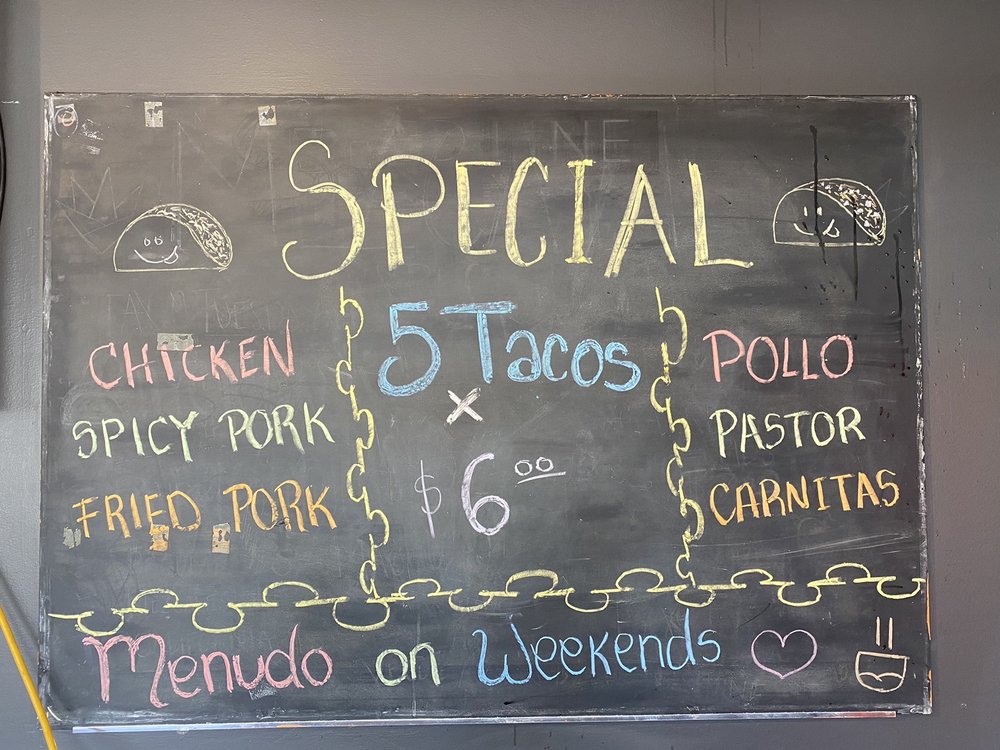 SPECIAL
CHICKEN
SPICY PORK
FRIED PORK
5 Tacos
x
$6.00
POLLO
PASTOR
CARNITAS
Menudo on Weekends